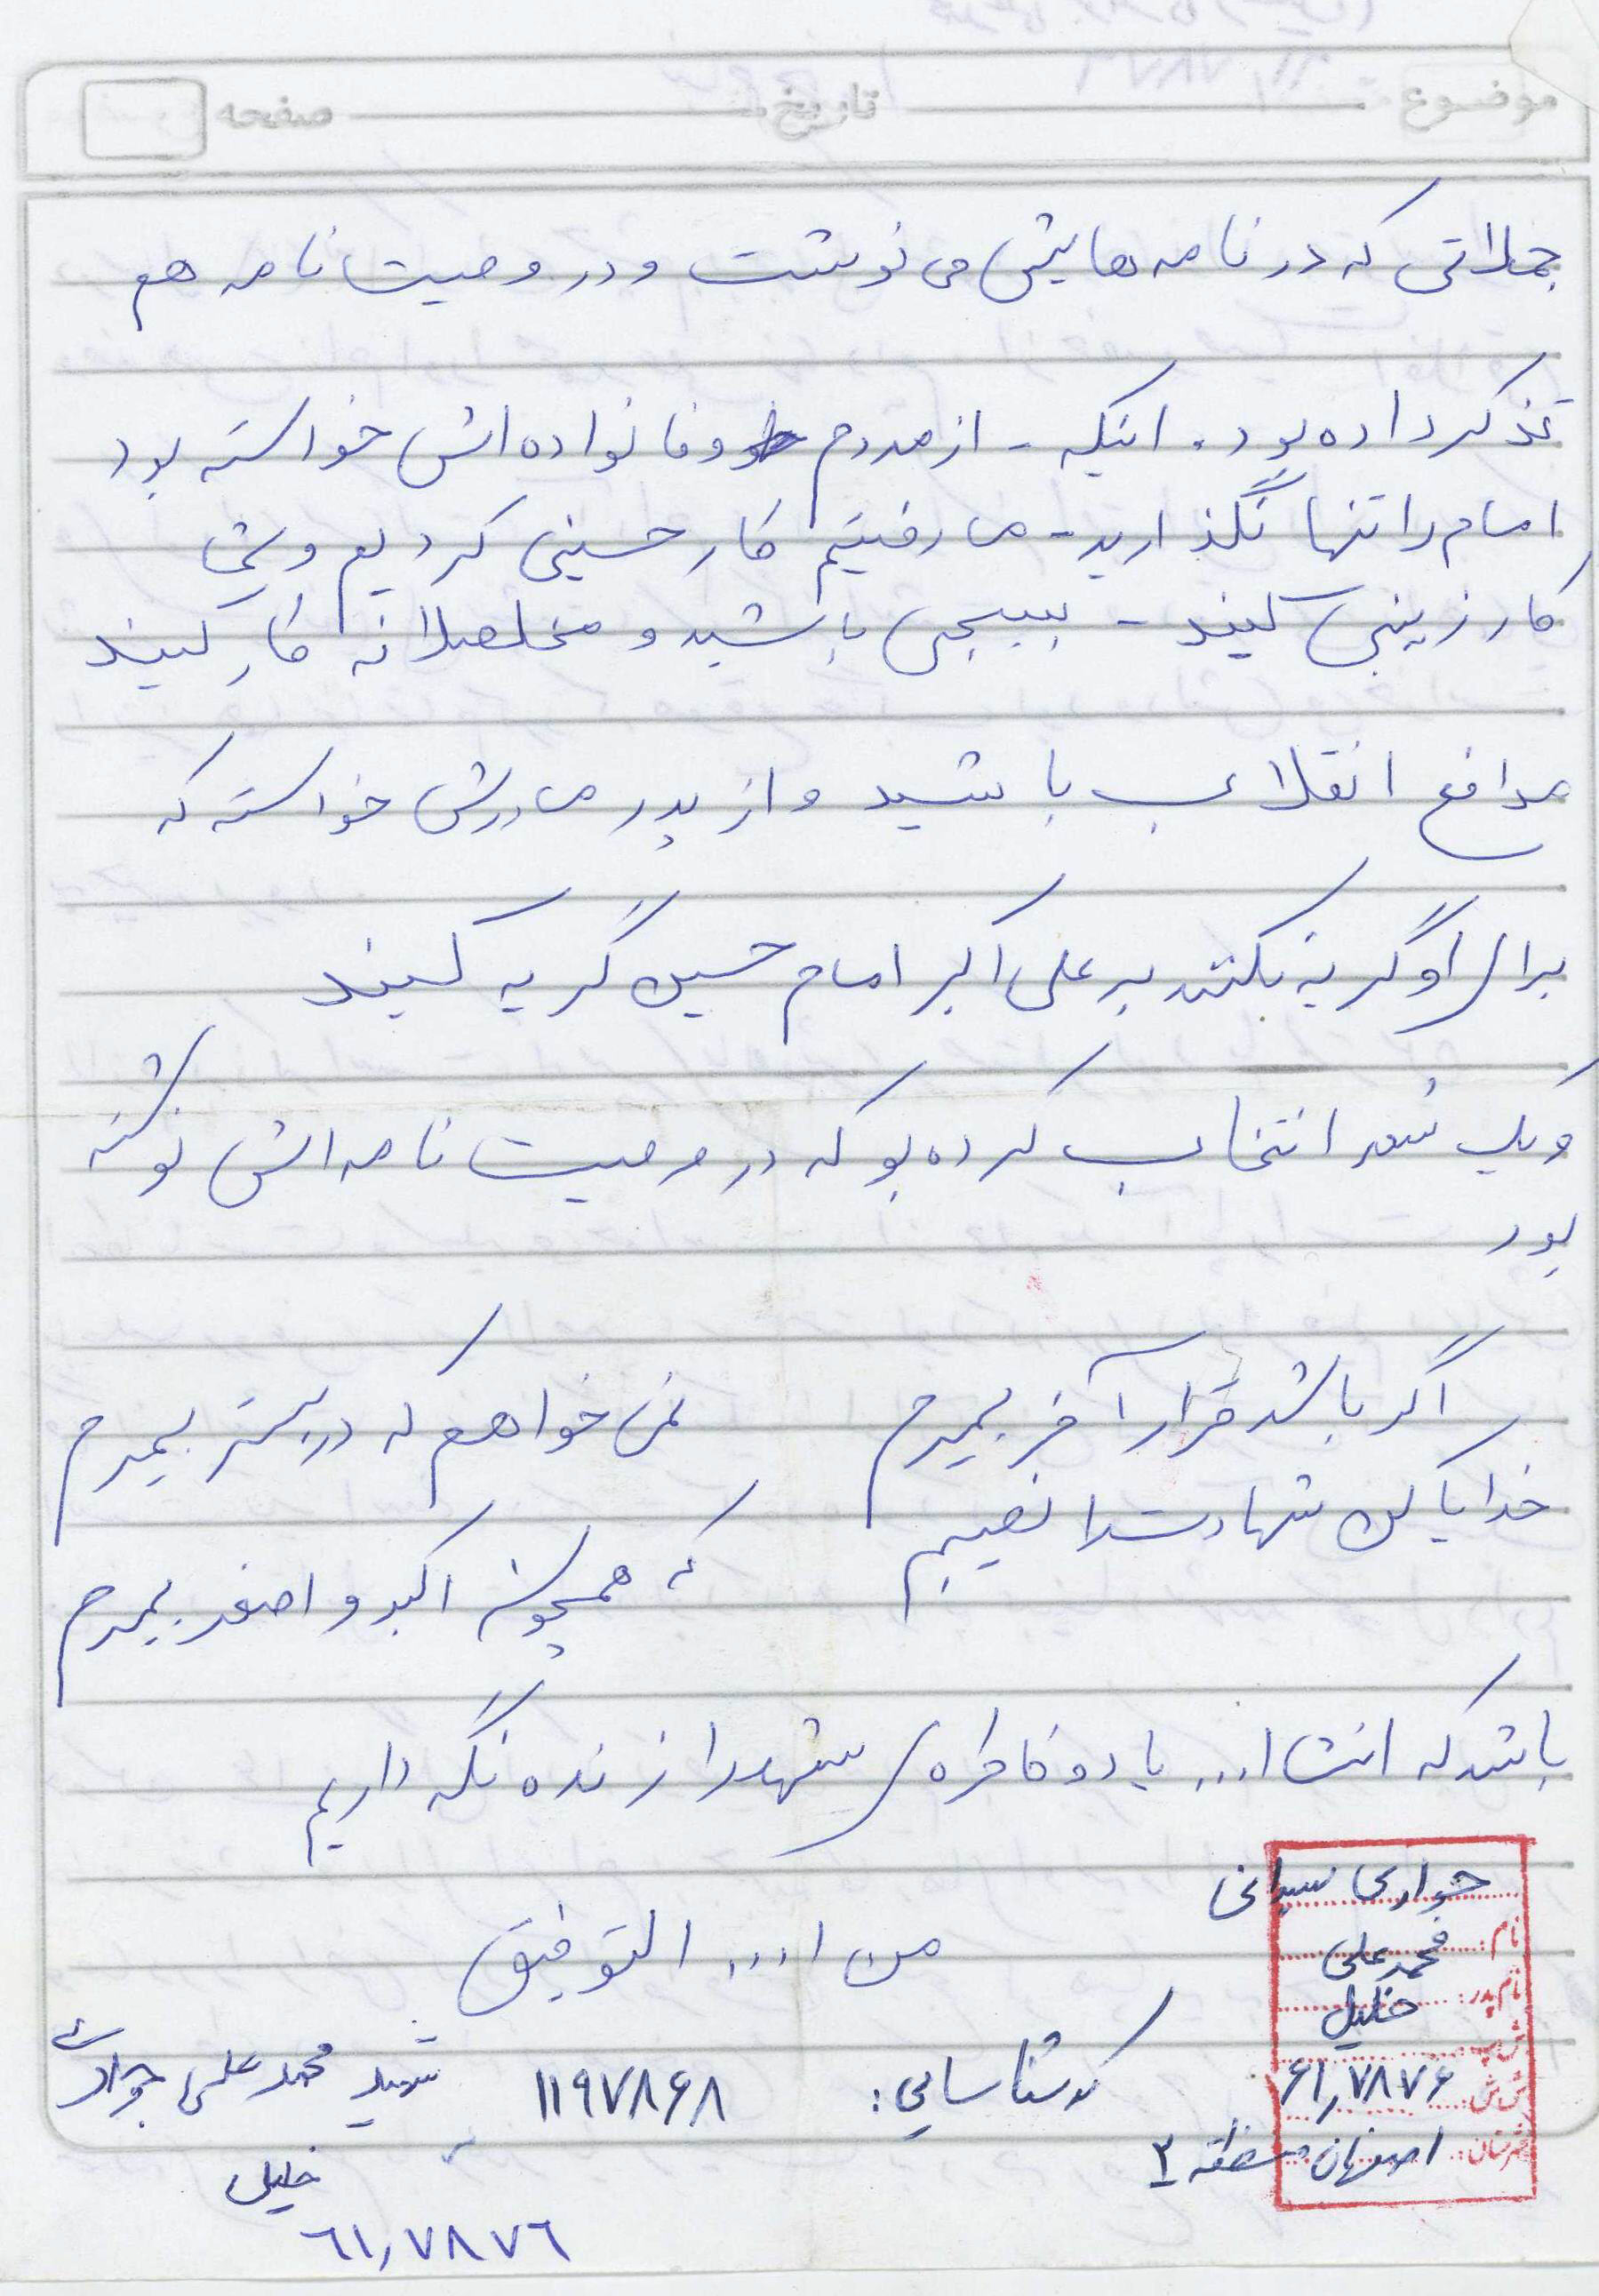 موضوع تاریخ صفحه
جملاتی که در نامه هایش می نوشت و در وصیت نامه هم
تذکر داده بود. اینکه - از مردم و خانواده اش خواسته بود
امام را تنها نگذارید - ما رفتیم کار حسینی کردیم و
کار زینبی کنید - بسیجی باشید و مخلصلانه کار کنید
مدافع انقلاب باشید و از پدر مادرش خواسته که
برای او گریه نکنند بر علی اکبر امام حسین گریه کنید
ویک شعر انتخاب کرده بو که در وصیت نامه اش نوشته
بود
اگر باشد قرار آخر بمیرم نمی خواهم که در بستر بمیرم
خدایا کن شهادت را نصیبم
که همچون اکبر و اصغر بمیرم
باشد که انشا ا... یاد و خاطره ی شهدا را زنده نگه داریم
جوادی
من ا... التوفیق
نام: محمد علی
نام پدر: خلیل
ش پ:
ش ش: ۶۱٫۷۸۷۶
شهرستان: اصفهان منطقه ۲
کد شناسایی: ۱۱۹۷۸۶۸
شهید محمد علی جوادی
خلیل
۶۱٫۷۸۷۶